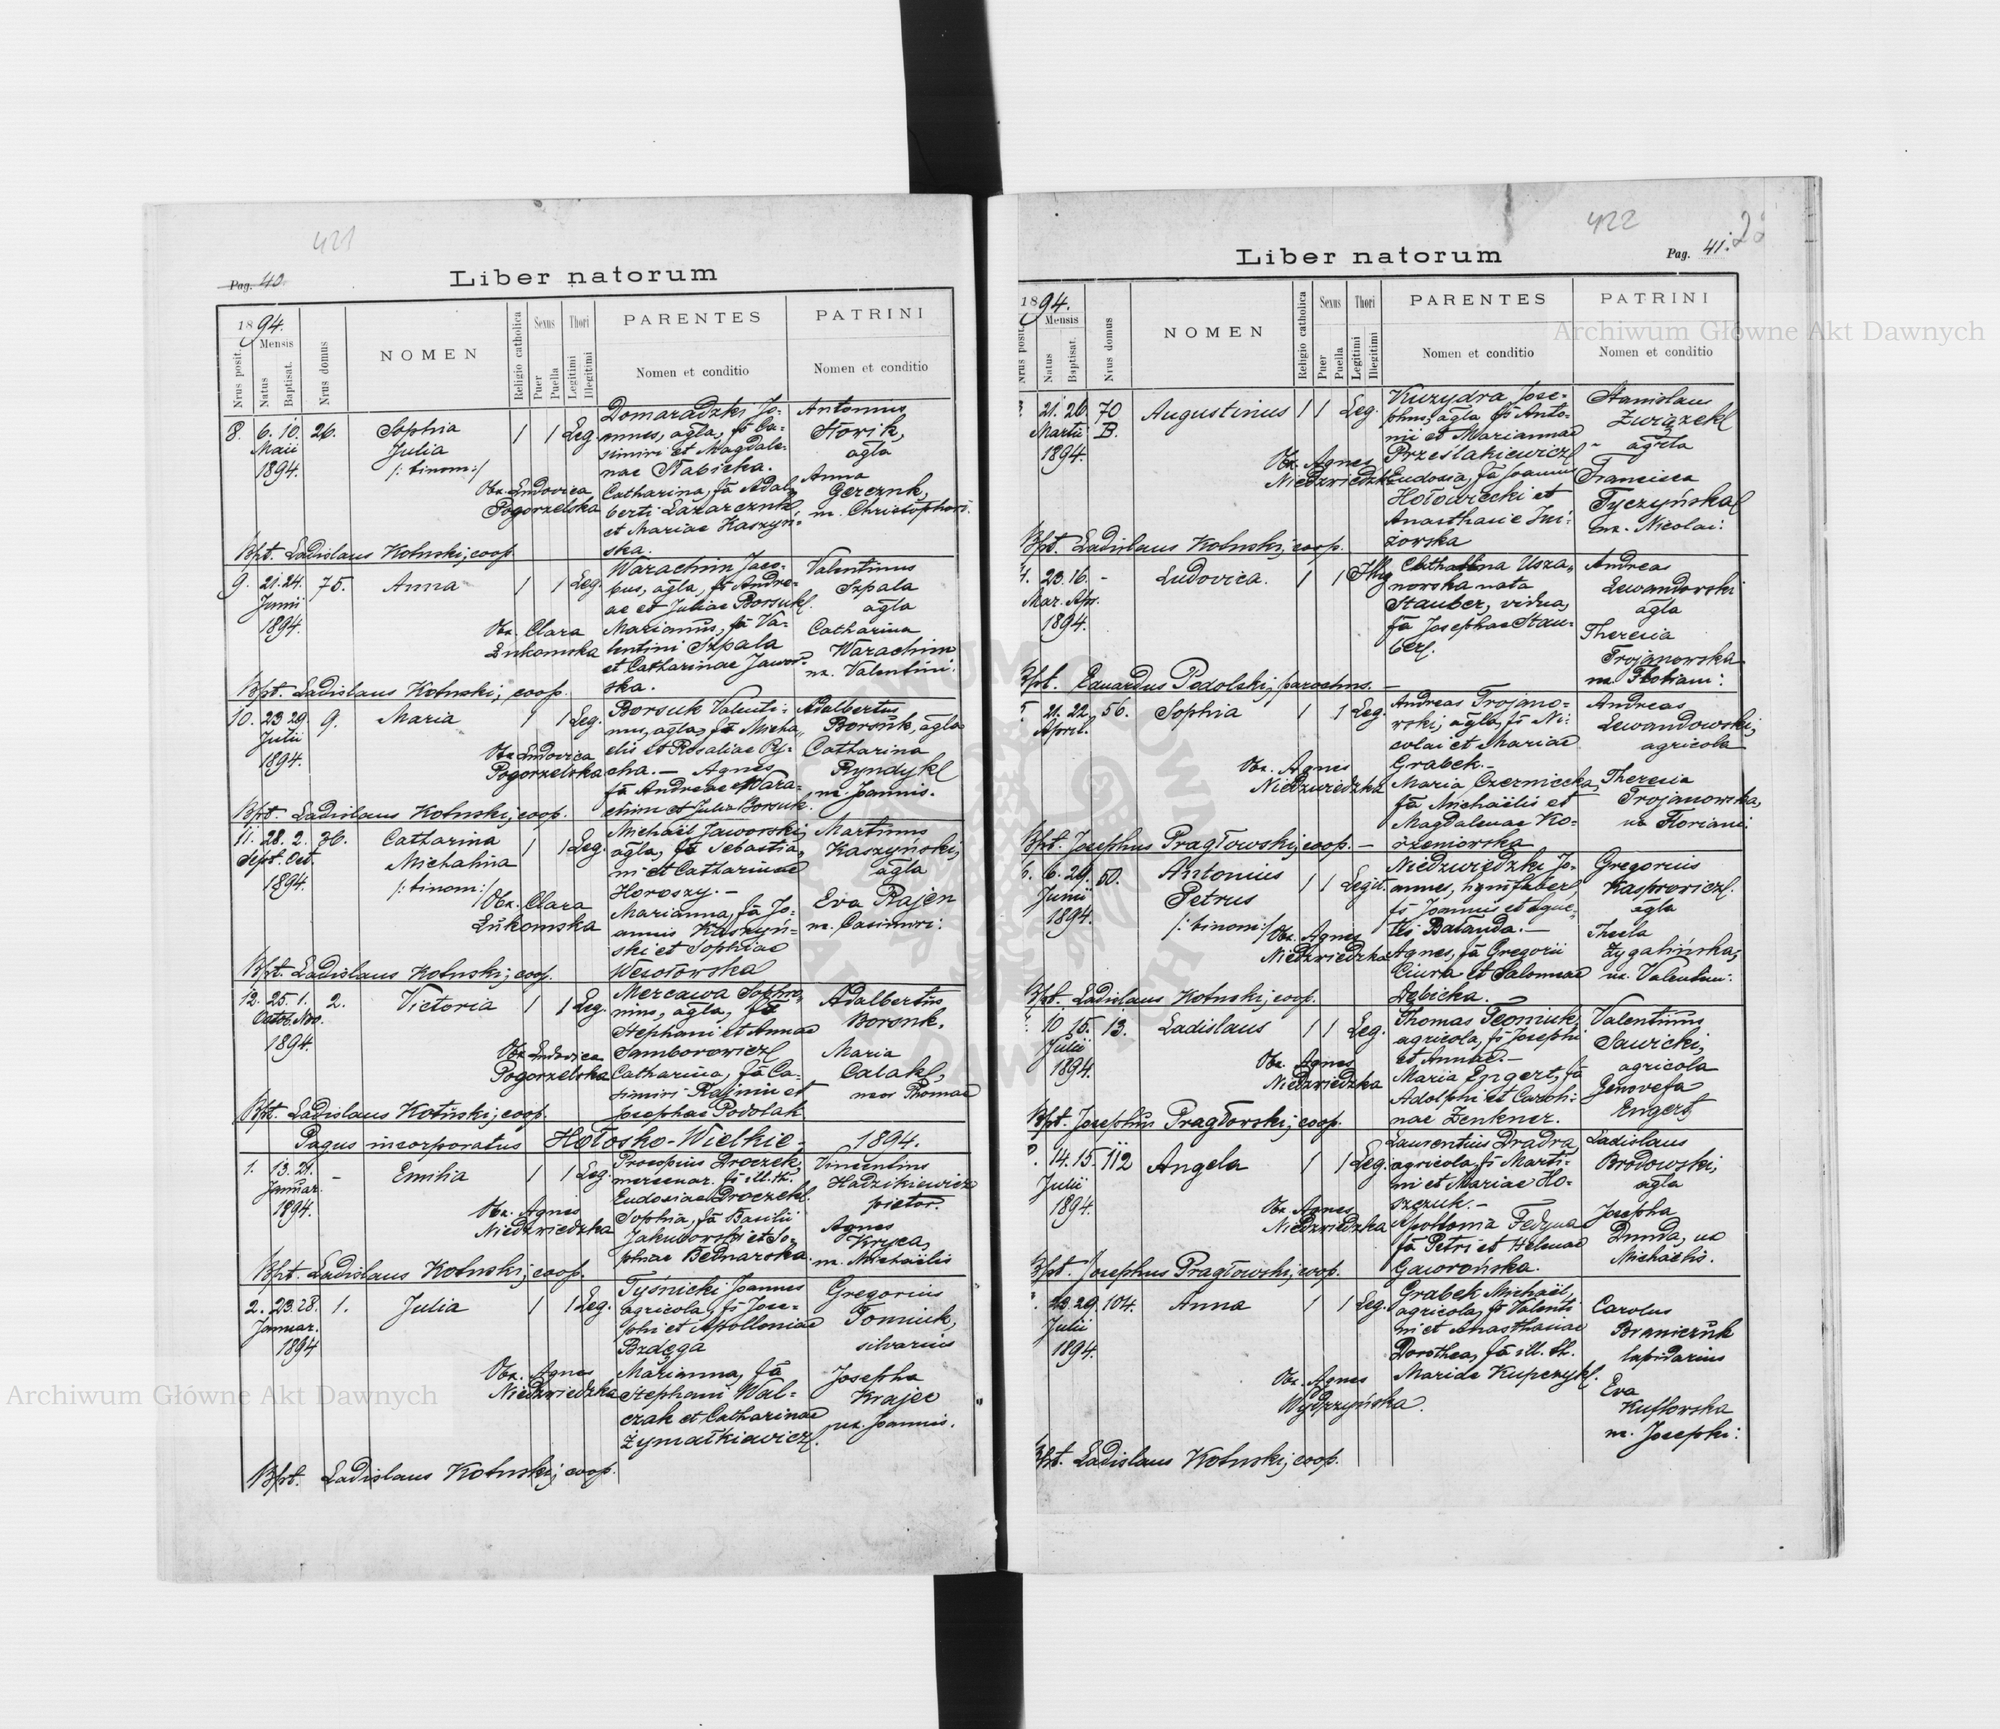 421
Pag. 40.
Liber natorum
1894.
Mensis
Nrus posit.
Natus
Baptisat.
Nrus domus
NOMEN
Religio catholica
Sexus
Puer
Puella
Thori
Legitimi
Illegitimi
PARENTES
Nomen et conditio
PATRINI
Nomen et conditio
8. 6. 10. 26. Sophia 1 1 Leg.
Maii Julia
1894. /: binom :/
Obx. Ludovica
Pogorzelska
Domaradzki Jo-
annes, agla, fs Ca-
simiri et Magdale-
nae Stabicka.
Catharina, fa Adal-
berti Łazarczuk
et Mariae Kaszyń-
ska.
Antonius
Storik,
agla
Anna
Gerczuk,
ux. Christophori.
Bpt. Ladislaus Kotuski, coop.
9. 21. 24. 75. Anna 1 1 Leg.
Junii
1894.
Obx. Clara
Łukomska
Warachim Jaco-
bus, agla, fs Andre-
ae et Juliae Borsuk.
Marianna, fa Va-
lentini Szpala
et Catharinae Jawor-
ska.
Valentinus
Szpala
agla
Catharina
Warachim
ux. Valentini.
Bpt. Ladislaus Kotuski, coop.
10. 23 29. 9. Maria 1 1 Leg.
Julii
1894.
Obx Ludovica
Pogorzelska
Borsuk Valenti-
nus, agla, fs Micha-
elis et Rosaliae Py-
cha. — Agnes,
fa Andreae Wara-
chim et Julia Borsuk.
Adalbertus
Borsuk, agla
Catharina
Ryndyk
ux. Joannis.
Bpt. Ladislaus Kotuski, coop.
11. 28. 2. 76. Catharina 1 1 Leg.
Sept. Oct. Michalina
1894. /: binom :/
Obx. Clara
Łukomska
Michaël Jaworski,
agla, fs Sebastia-
ni et Catharinae
Horoszy. —
Marianna, fa Jo-
annis Kaszyń-
ski et Sophiae
Wesołowska
Martinus
Kaszyński,
agla
Eva Rajen
ux. Casimiri.
Bpt. Ladislaus Kotuski, coop.
12. 25. 1. 2. Victoria 1 1 Leg.
Octob. Nov.
1894.
Obx Ludovica
Pogorzelska
Mercawa Sophro-
nius, agla, fs
Stephani et Annae
Samborowicz
Catharina, fa Ca-
simiri Rajmin et
Josephae Podolak
Adalbertus
Borsuk.
Maria
Calak,
uxor Thomae
Bpt. Ladislaus Kotuski, coop.
Pagus incorporatus Hołosko-Wielkie. 1894.
1. 13. 21. - Emilia 1 1 Leg.
Januar.
1894.
Obx. Agnes
Niedzwiedzka
Procopius Droczek,
mercenar. fs ill. th.
Eudosiae Droczek.
Sophia, fa Basilii
Jakubowski et So-
phiae Bednarska.
Vincentius
Hadzikiewicz
pictor.
Agnes
Kryca,
ux. Michaëlis
Bpt. Ladislaus Kotuski, coop.
2. 23. 28. 1. Julia 1 1 Leg.
Januar.
1894
Obx. Agnes
Niedzwiedzka
Tyśnicki Joannes
agricola, fs Jose-
phi et Apolloniae
Bzdęga
Marianna, fa
Stephani Wal-
czak et Catharinae
Żymałkiewicz.
Gregorius
Tomiuk,
silvarius
Josepha
Krajec
ux. Joannis.
Bpt. Ladislaus Kotuski, coop.
422
Liber natorum
Pag. 41.
1894.
Mensis
Nrus posit.
Natus
Baptisat.
Nrus domus
NOMEN
Religio catholica
Sexus
Puer
Puella
Thori
Legitimi
Illegitimi
PARENTES
Nomen et conditio
PATRINI
Nomen et conditio
21. 26. 70 Augustinus 1 1 Leg.
Martii B.
1894.
Obx. Agnes
Niedzwiedzka
Kuzydra Jose-
phus, agla fs Anto-
nii et Mariannae
Prześlakiewicz
Eudosia, fa Joannis
Hołowiecki et
Anasthasie
Stanislaus
Związek
agla
Francisca
Tyczyńska
ux. Nicolai.
Bpt. Ladislaus Kotuski, coop.
23. 16. - Ludovica. 1 1 Illeg
Mar. Apr.
1894.
Catharina Usza-
nowska nata
Stauber, vidua,
fa Josephae Stau-
ber.
Andreas
Lewandowski
agla
Theresia
Trojanowska
ux. Floriani.
Bpt. Eduardus Podolski, parochus. —
21. 22. 56. Sophia 1 1 Leg.
April.
Obx. Agnes
Niedzwiedzka
Andreas Trojano-
wski, agla, fs Ni-
colai et Mariae
Grabek. -
Maria Czerniecka,
fa Michaëlis et
Magdalenae Ko-
rzeniowska
Andreas
Lewandowski,
agricola
Theresia
Trojanowska,
ux Floriani.
Bpt. Josephus Pragłowski, coop. —
6. 29. 50. Antonius 1 1 Legit.
Junii Petrus
1894. /: binom :/
Obx. Agnes
Niedzwiedzka
Niedzwiedzki Jo-
annes,
fs Joannis et Agne-
tis Bałanda. —
Agnes, fa Gregorii
Ciura et Salomeae
Gregorius
Kasprowicz.
agla
Thecla
Zygalińska,
ux. Valentini.
Bpt. Ladislaus Kotuski, coop.
10 15. 13. Ladislaus 1 1 Leg.
Julii
1894.
Obx. Agnes
Niedzwiedzka
Thomas Peoniuk,
agricola, fs Josephi
et Annae. —
Maria Engert, fa
Adolphi et Caroli-
nae Zenkner.
Valentinus
Sawicki,
agricola
Genovefa
Engert
Bpt. Josephus Pragłowski, coop.
14. 15. 112 Angela 1 1 Leg.
Julii
1894.
Obx. Agnes
Niedzwiedzka
Laurentius Dradra,
agricola, fs Marti-
ni et Mariae Ho-
szczuk. —
Apollonia Fedyna
fa Petri et Helenae
Gaworońska.
Ladislaus
Brodowski,
agla
Josepha
Dunda, ux
Michaëlis.
Bpt. Josephus Pragłowski, coop.
23. 29. 104. Anna 1 1 Leg.
Julii
1894.
Obx. Agnes
Wydrzyńska.
Grabek Michaël,
agricola, fs Valenti-
ni et Anasthasiae
Dorothea, fa ill. th.
Mariae Kupczyk.
Carolus
Braniczuk
lapidarius
Eva
Kuflowska
ux. Josephi.
Bpt. Ladislaus Kotuski, coop.
Archiwum Główne Akt Dawnych
Archiwum Główne Akt Dawnych